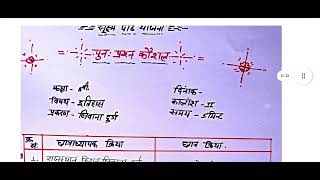 सूक्ष्म पाठ योजना
पुनः प्रश्न कौशल
कक्षा - 8वीं
दिनांक -
विषय - इतिहास
कालांश - II
प्रकरण - सिवाना दुर्ग
समय - 5 मिनट
क्र सं.
छात्राध्यापक क्रिया
छात्र क्रिया.
1.
राजस्थान
सिवाना दुर्ग